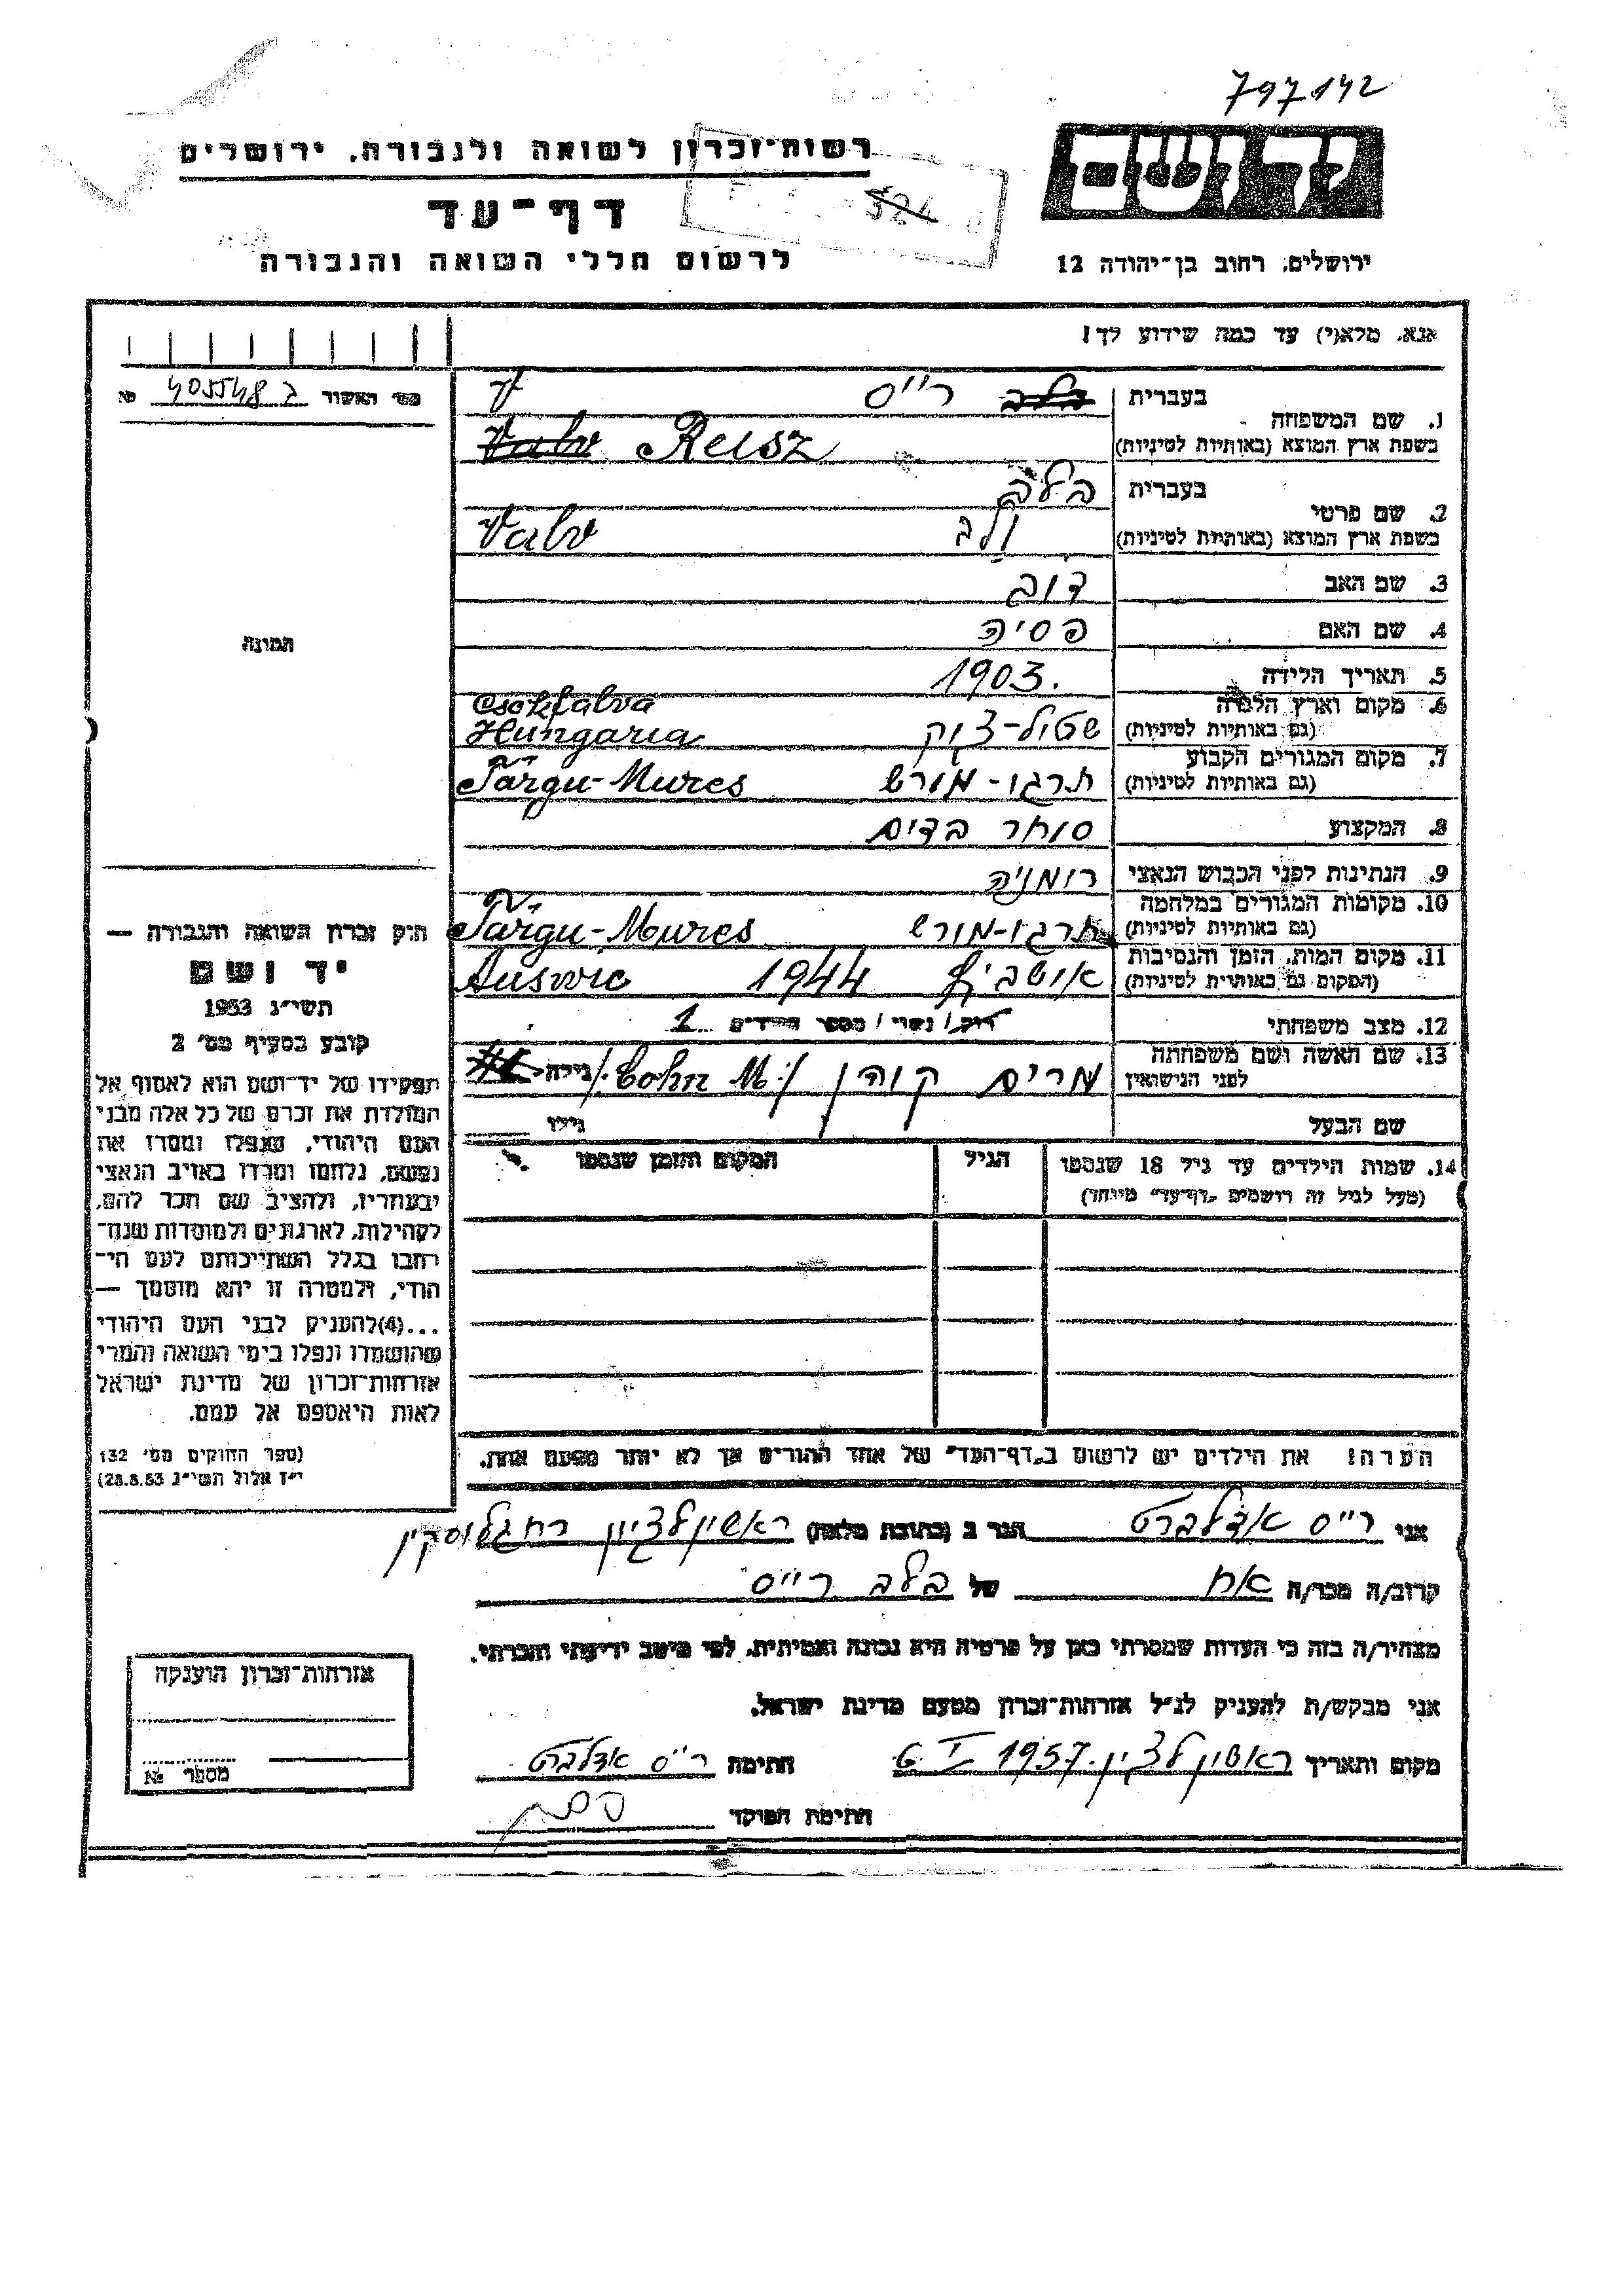 797142
רשות-זכרון לשואה ולגבורה, ירושלים
דף-עד
לרשום חללי השואה והגבורה
יד ושם
ירושלים, רחוב בן-יהודה 12
אנא, מלא(י) עד כמה שידוע לך!
מס' האשור ג 405548 №
1. שם המשפחה
בעברית רייס
בשפת ארץ המוצא (באותיות לטיניות) Valv Reisz
2. שם פרטי
בעברית בלב
בשפת ארץ המוצא (באותיות לטיניות) ולב Valv
3. שם האב דוב
4. שם האם פסיה
5. תאריך הלידה 1903.
6. מקום וארץ הלידה
(גם באותיות לטיניות) Csokfalva
Hungaria
7. מקום המגורים הקבוע
(גם באותיות לטיניות) תרגו-מורש Târgu-Mures
8. המקצוע סוחר בדים
9. הנתינות לפני הכבוש הנאצי רומניה
10. מקומות המגורים במלחמה
(גם באותיות לטיניות) תרגו-מורש Târgu-Mures
11. מקום המות, הזמן והנסיבות
(המקום גם באותיות לטיניות) 1944 Auswic
12. מצב משפחתי רווק / נשוי / מספר הילדים 1
13. שם האשה ושם משפחתה
לפני הנישואין מרים קוהן /Cohn M./ גילה
שם הבעל גילו
14. שמות הילדים עד גיל 18 שנספו
(מעל לגיל זה רושמים "דף-עד" מיוחד)
הגיל
המקום והזמן שנספו
הערה! את הילדים יש לרשום ב"דף-העד" של אחד ההורים אך לא יותר מפעם אחת.
תמונה
חוק זכרון השואה והגבורה —
יד ושם
תשי"ג 1953
קובע בסעיף מס' 2
תפקידו של יד-ושם הוא לאסוף אל
המולדת את זכרם של כל אלה מבני
העם היהודי, שנפלו ומסרו את
נפשם, נלחמו ומרדו באויב הנאצי
ובעוזריו, ולהציב שם וזכר להם,
לקהילות, לארגונים ולמוסדות שנח-
רבו בגלל השתייכותם לעם הי-
הודי, ולמטרה זו יהא מוסמך —
...(4)להעניק לבני העם היהודי
שהושמדו ונפלו בימי השואה והמרי
אזרחות-זכרון של מדינת ישראל
לאות היאספם אל עמם.
(ספר החוקים מס' 132
י"ז אלול תשי"ג 28.8.53)
אני רייס אדלברט הגר ב (כתובת מלאה) ראשון לציון רח
קרוב/ה מכר/ה אח של בלב רייס
מצהיר/ה בזה כי העדות שמסרתי כאן על פרטיה היא נכונה ואמיתית, לפי מיטב ידיעתי והכרתי.
אני מבקש/ת להעניק לנ"ל אזרחות-זכרון מטעם מדינת ישראל.
מקום ותאריך ראשון לציון 1957 I 6 חתימה רייס אדלברט
חתימת הפוקד
אזרחות-זכרון הוענקה
מספר №